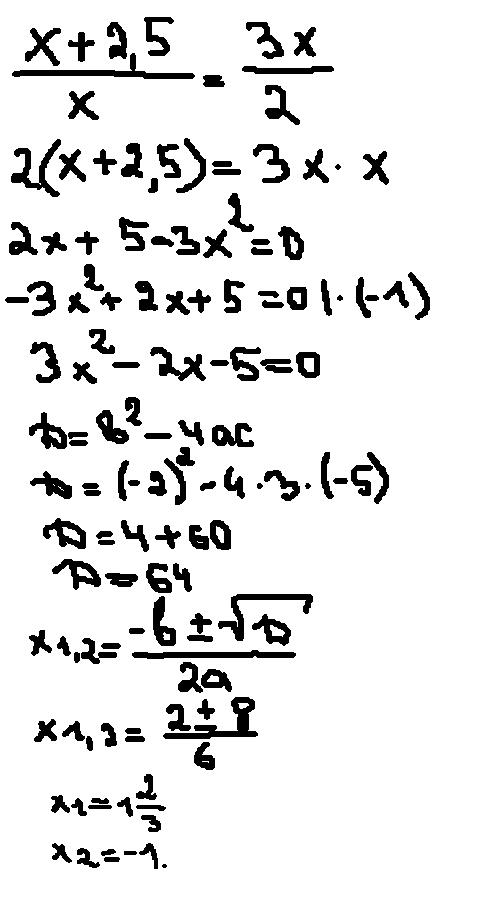 (x+2,5)/x = 3x/2
2(x+2,5)=3x·x
2x+5-3x²=0
-3x²+2x+5=0|·(-1)
3x²-2x-5=0
D=b²-4ac
D=(-2)²-4·3·(-5)
D=4+60
D=64
x1,2=(-b±√D)/2a
x1,2=(2±8)/6
x1=1 2/3
x2=-1.